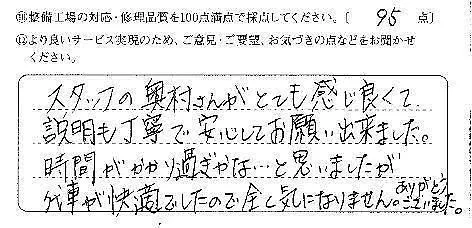 ⑩整備工場の対応・修理品質を100点満点で採点してください。〔 95 点〕
⑪より良いサービス実現のため、ご意見・ご要望、お気づきの点などをお聞かせ
ください。
スタッフの奥村さんがとても感じ良くて
説明も丁寧で安心してお願い出来ました。
時間がかかり過ぎかな…と思いましたが
代車が快適でしたので全く気になりません。ありがとう
ございました。